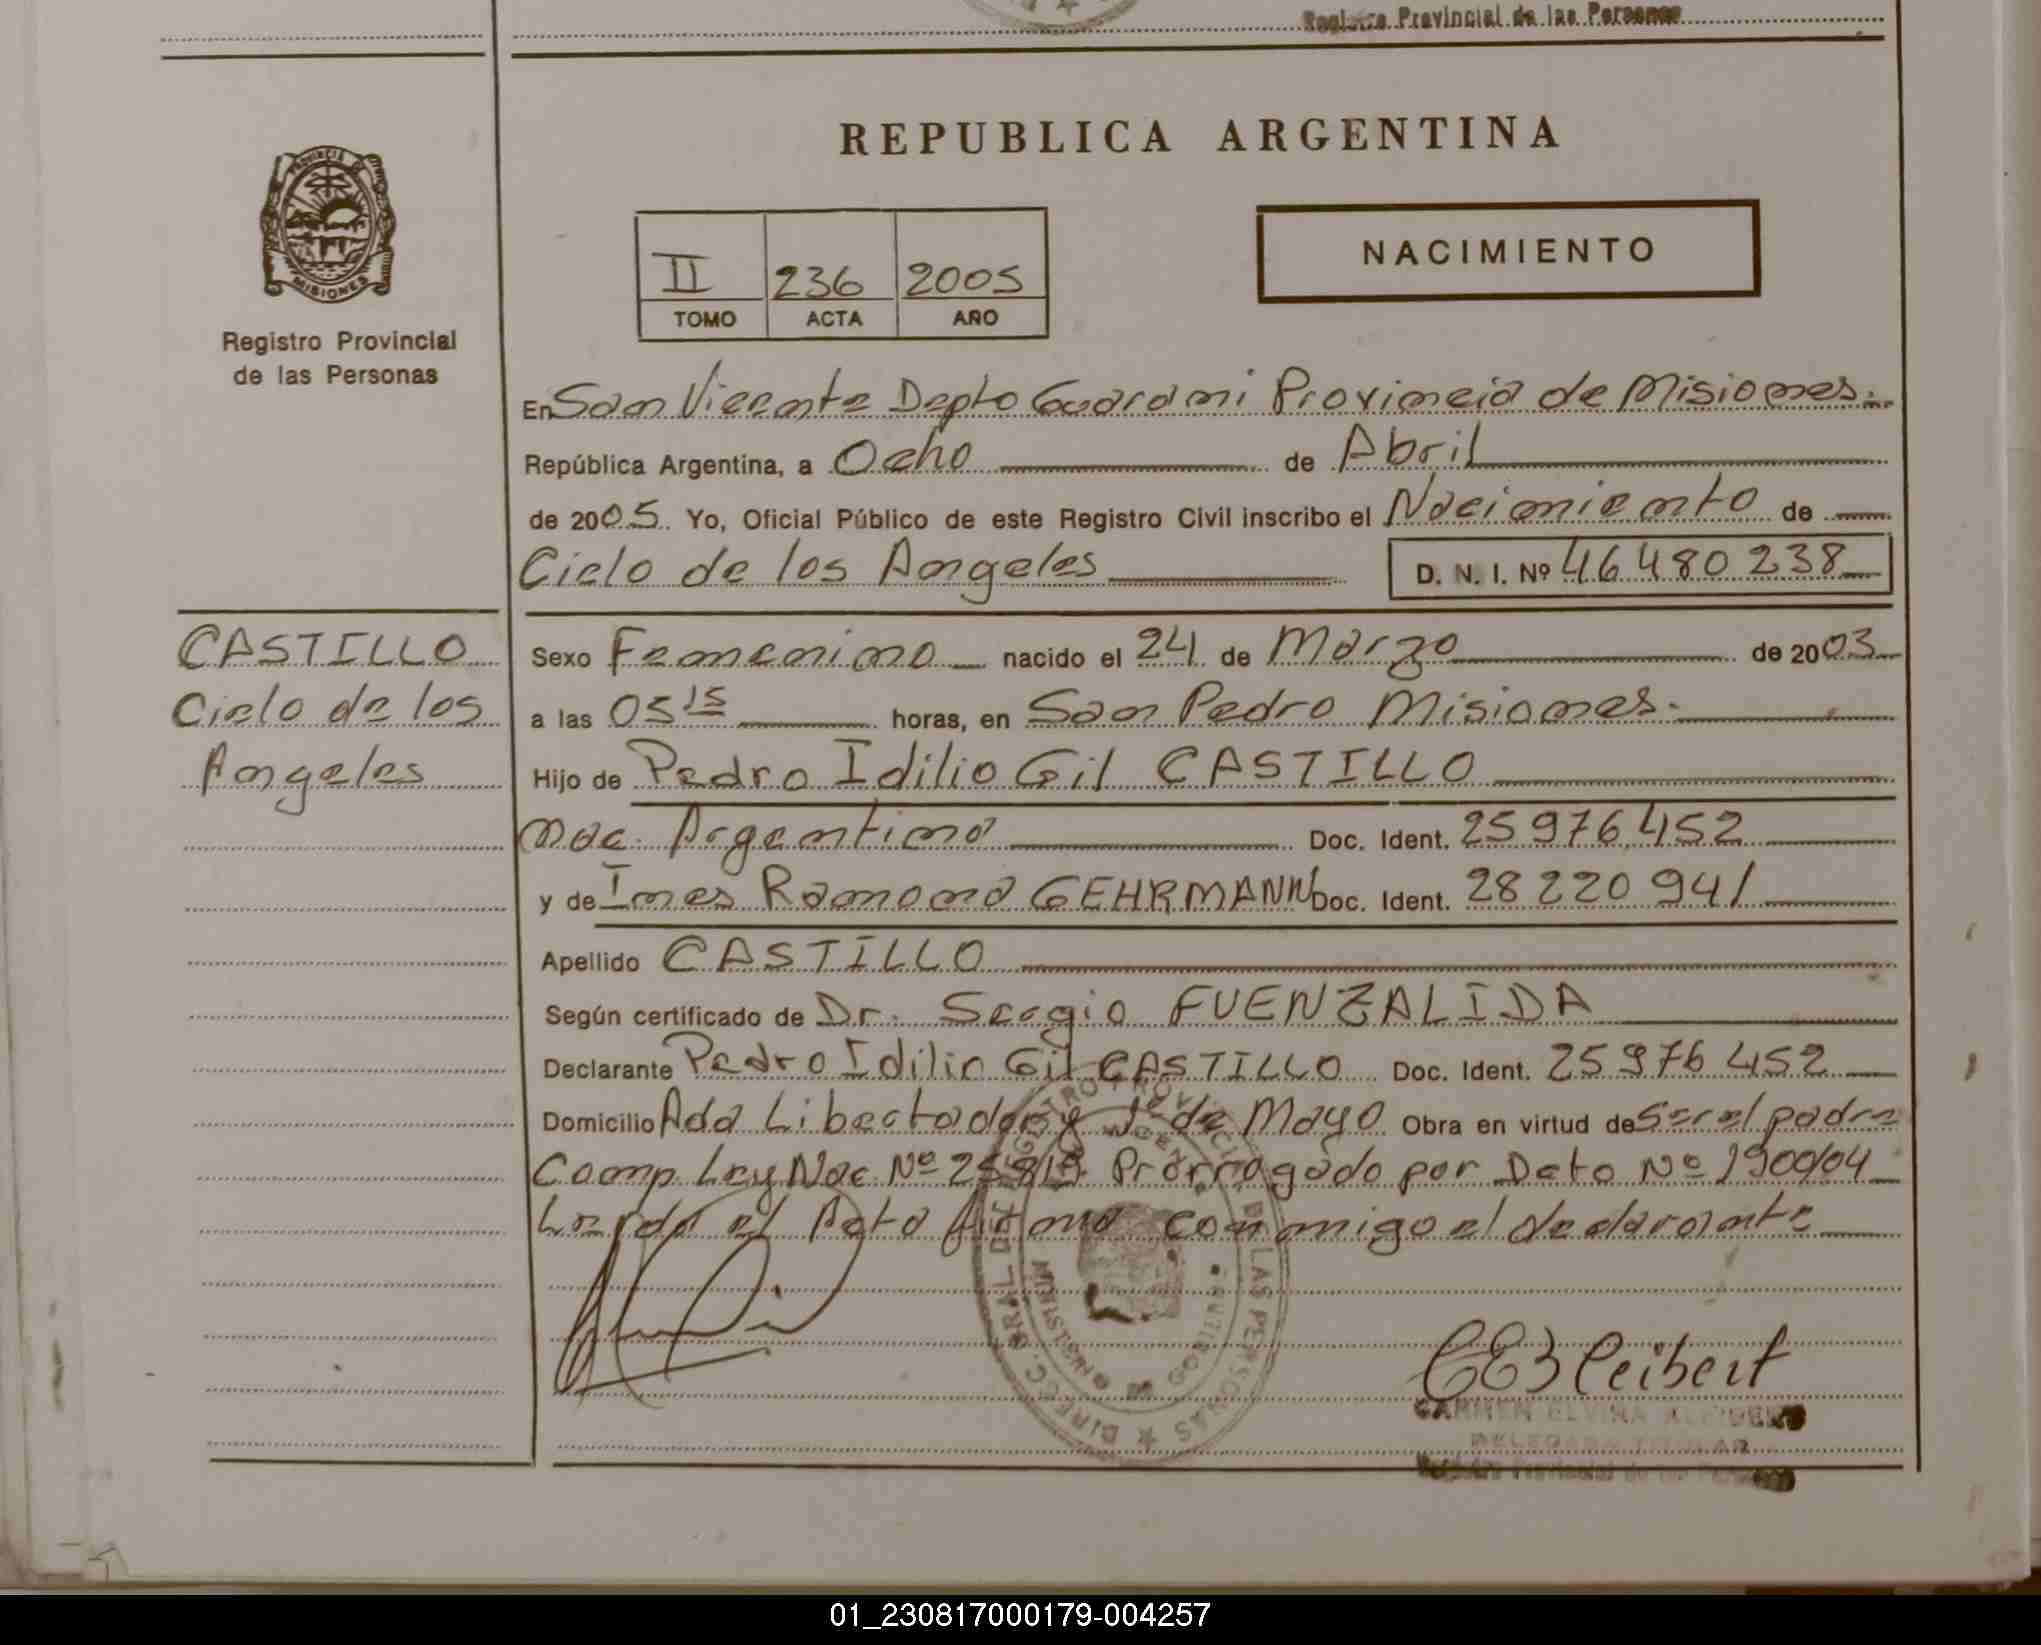 Registro Provincial de las Personas
REPUBLICA ARGENTINA
PROVINCIA DE MISIONES
Registro Provincial
de las Personas
NACIMIENTO
II 236 2005
TOMO ACTA AÑO
En San Vicente Depto Guarani Provincia de Misiones.-
República Argentina, a Ocho de Abril
de 2005. Yo, Oficial Público de este Registro Civil inscribo el Nacimiento de
Cielo de los Angeles D. N. I. Nº 46480238
CASTILLO
Cielo de los
Angeles
Sexo Femenino nacido el 24 de Marzo de 2003
a las 05 15 horas, en San Pedro Misiones.
Hijo de Pedro Idilio Gil CASTILLO
nac. Argentina Doc. Ident. 25976452
y de Ines Ramona GEHRMANN Doc. Ident. 28220941
Apellido CASTILLO
Según certificado de Dr. Sergio FUENZALIDA
Declarante Pedro Idilio Gil CASTILLO Doc. Ident. 25976452
Domicilio Ada Libertador y 1º de Mayo Obra en virtud de Ser el padre
Comp. Ley Nac. Nº 25819 Prorrogado por Dcto Nº 1900/04
Leyda el Acta firma conmigo el declarante
DIRECC. GRAL. DEL REGISTRO PROVINCIAL DE LAS PERSONAS
CARMEN ELVIRA
DELEGADA TITULAR
Registro Provincial de las Personas
01_230817000179-004257